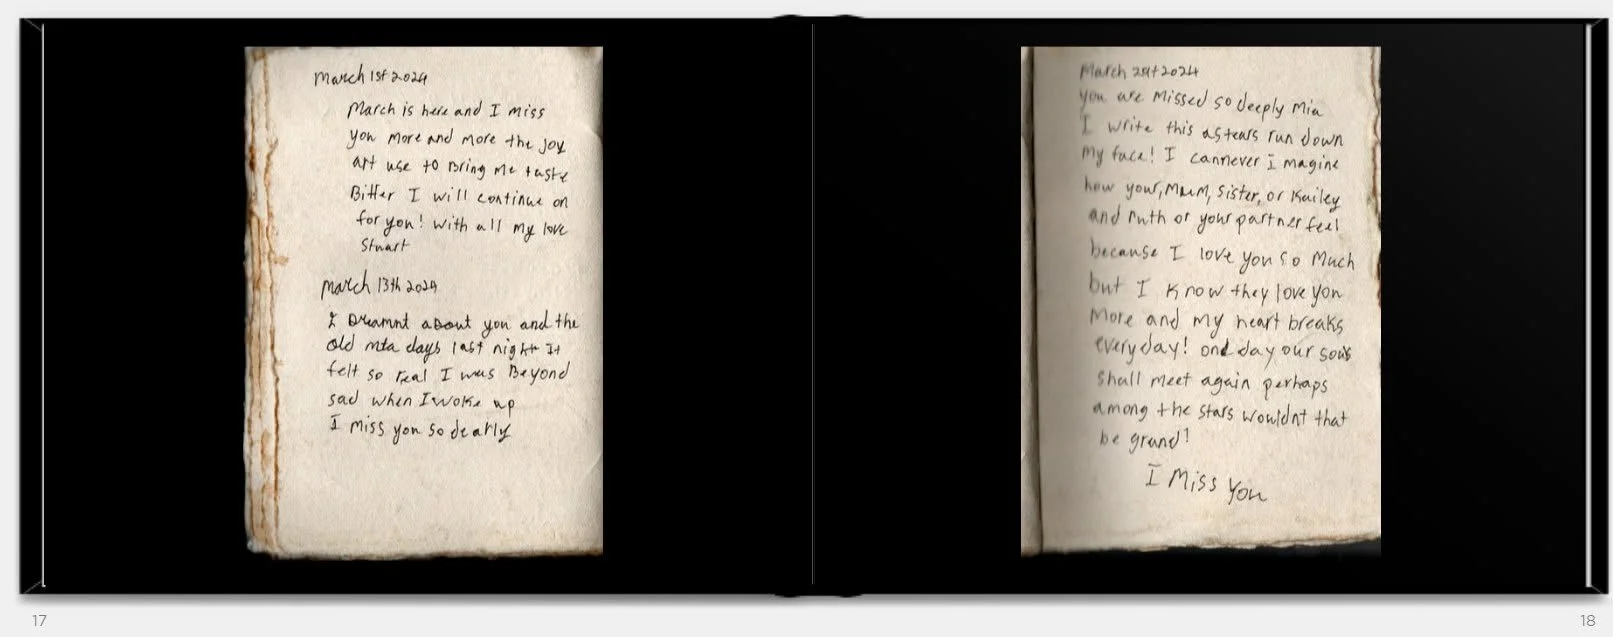 March 1st 2024
March is here and I miss
you more and more the joy
art use to Bring me taste
Bitter I will continue on
for you! with all my love
Stuart
March 13th 2024
I Dreamnt about you and the
old mta days last night It
felt so real I was Beyond
sad when I woke up
I miss you so dearly
March 2024
you are missed so deeply Mia
I write this as tears run down
My face! I cannever imagine
how your, Mum, Sister, or Kailey
and Ruth or your partner feel
because I love you so Much
but I Know they love you
More and my heart breaks
everyday! one day our souls
shall meet again perhaps
among the stars wouldnt that
be grand!
I Miss You
17
18